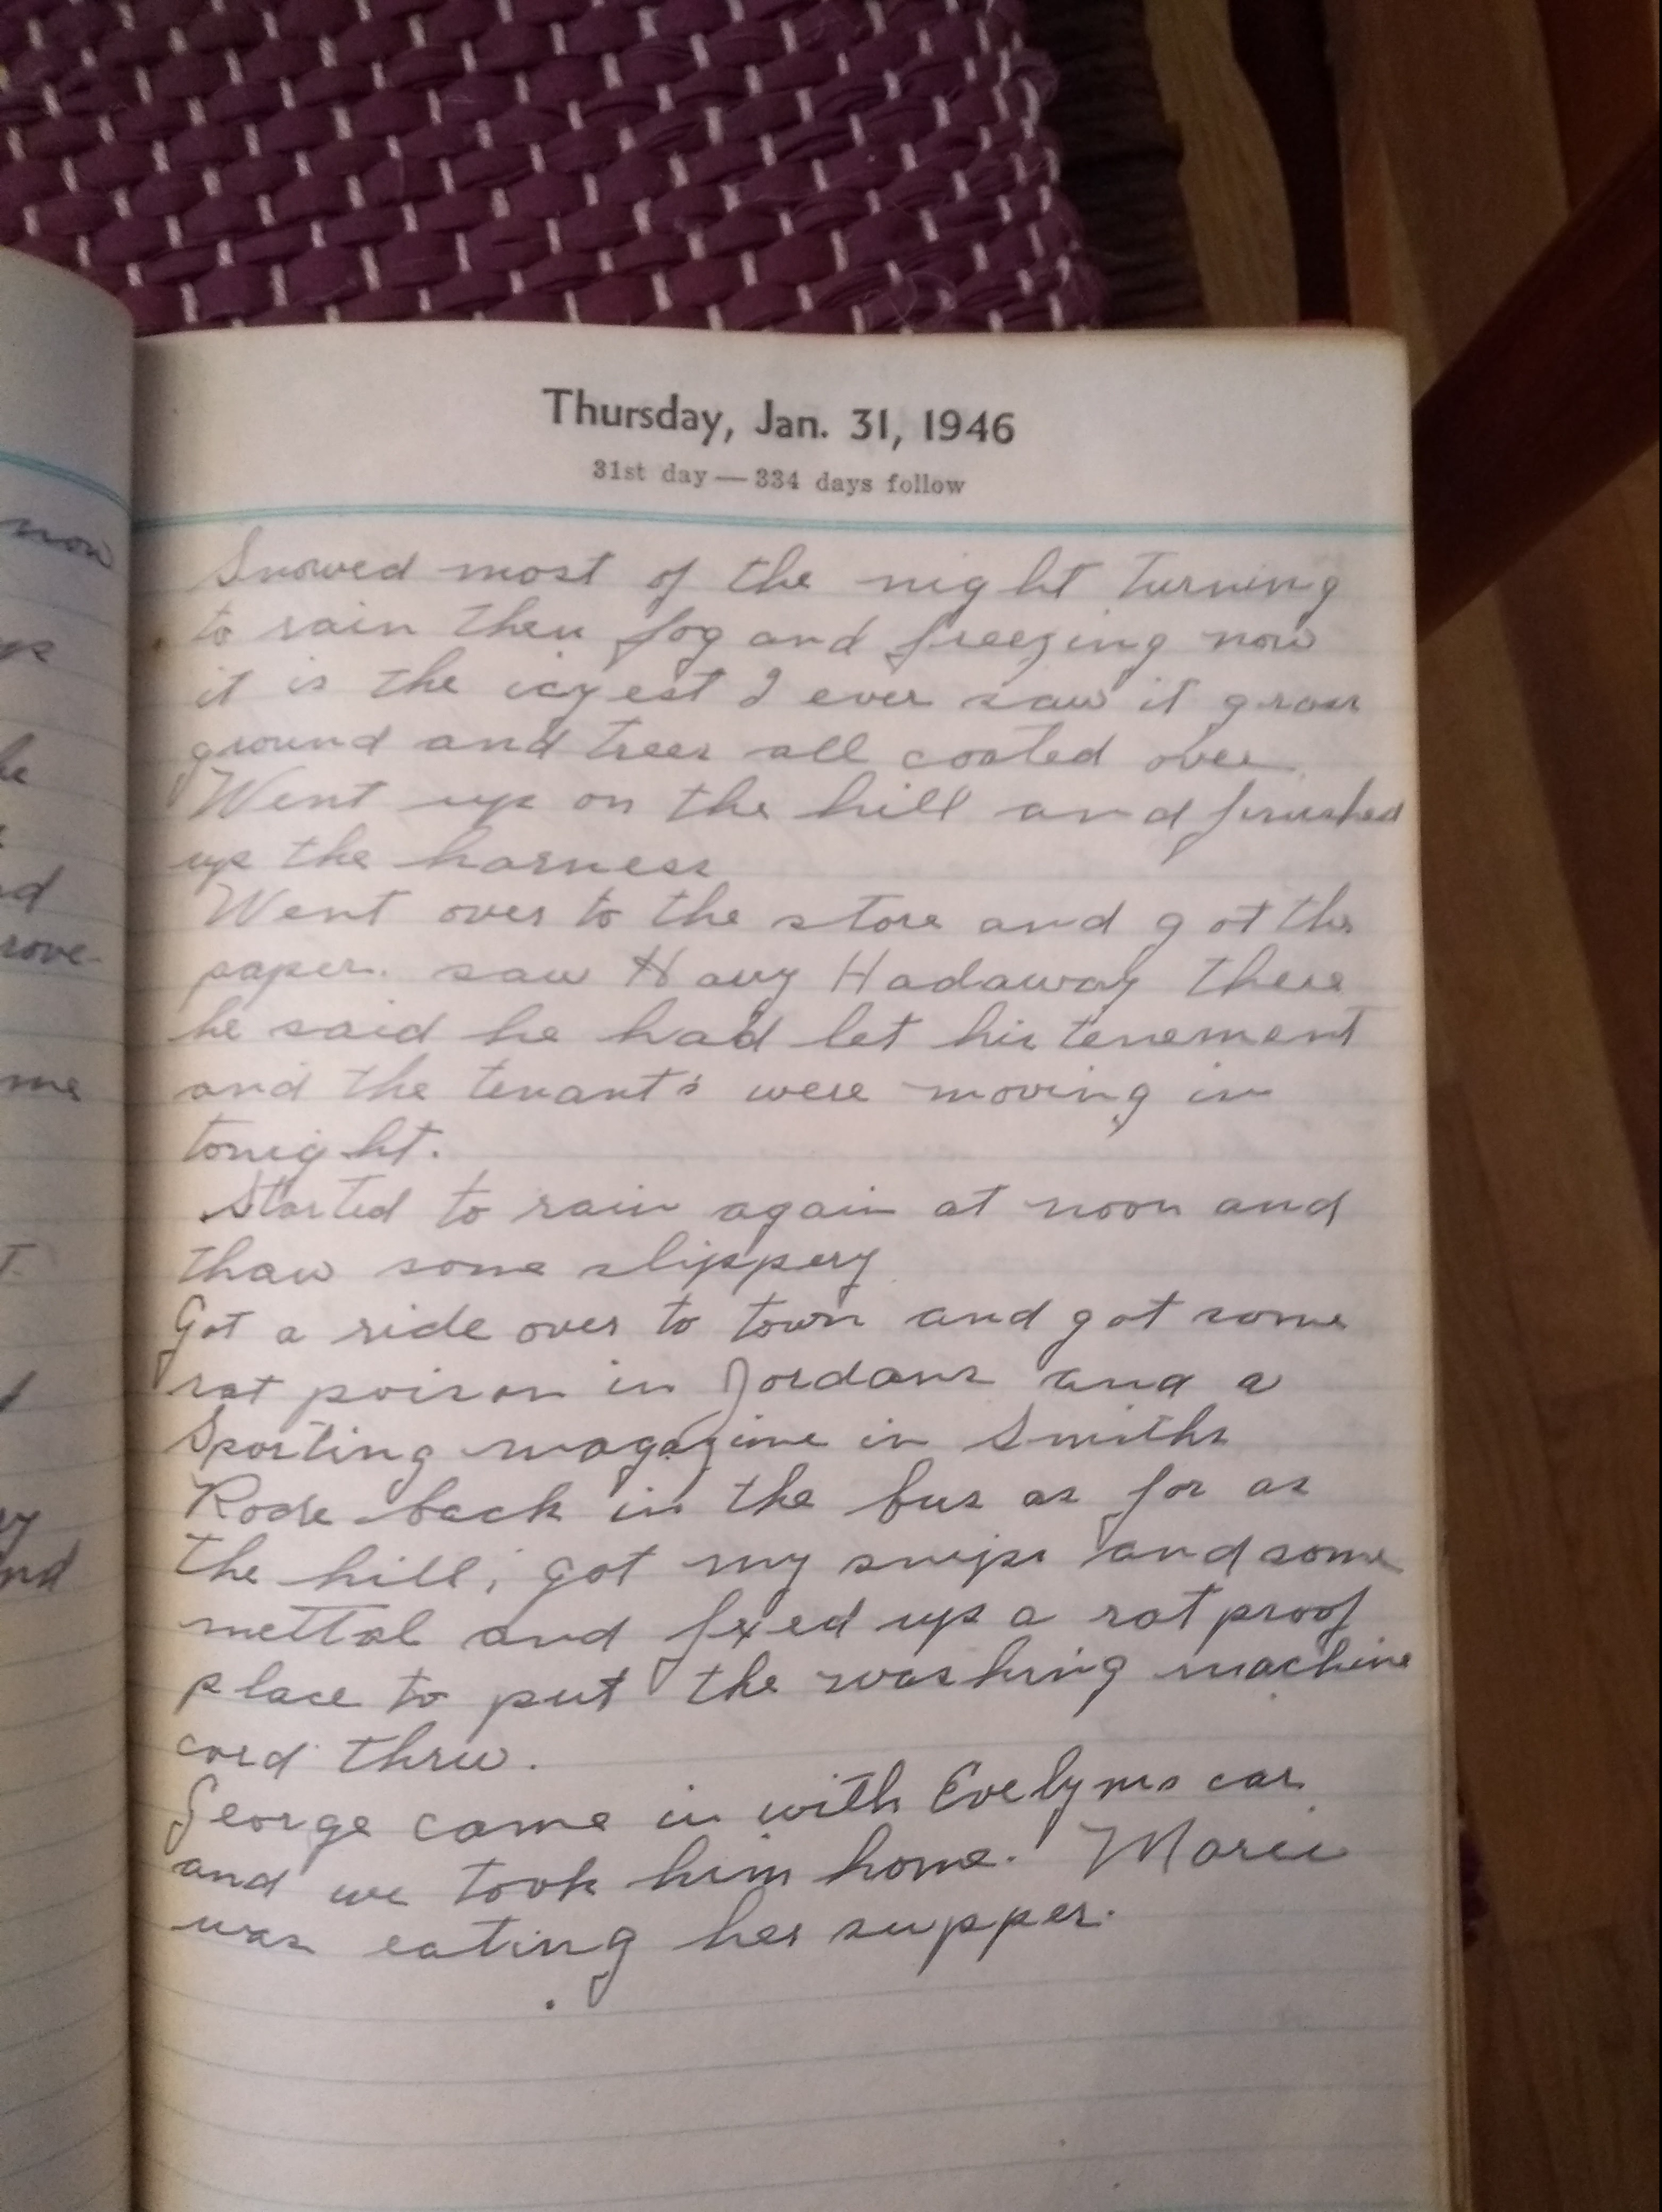 Thursday, Jan. 31, 1946
31st day — 334 days follow
Snowed most of the night turning
to rain then fog and freezing now
it is the icyest I ever saw it grass
ground and trees all coated over.
Went up on the hill and finished
up the harness
Went over to the store and got the
paper. saw Hadaway there
he said he had let his tenement
and the tenant's were moving in
tonight.
Started to rain again at noon and
thaw some slippery
Got a ride over to town and got some
rat poison in Jordans and a
Sporting magazine in Smiths
Rode back in the bus as far as
the hill, got my snips and some
mettal and fixed up a rat proof
place to put the washing machine
cord thru.
George came in with Evelyns car
and we took him home.
was eating her supper.
now
up
he
nd
rove-
me
T
ry
nd